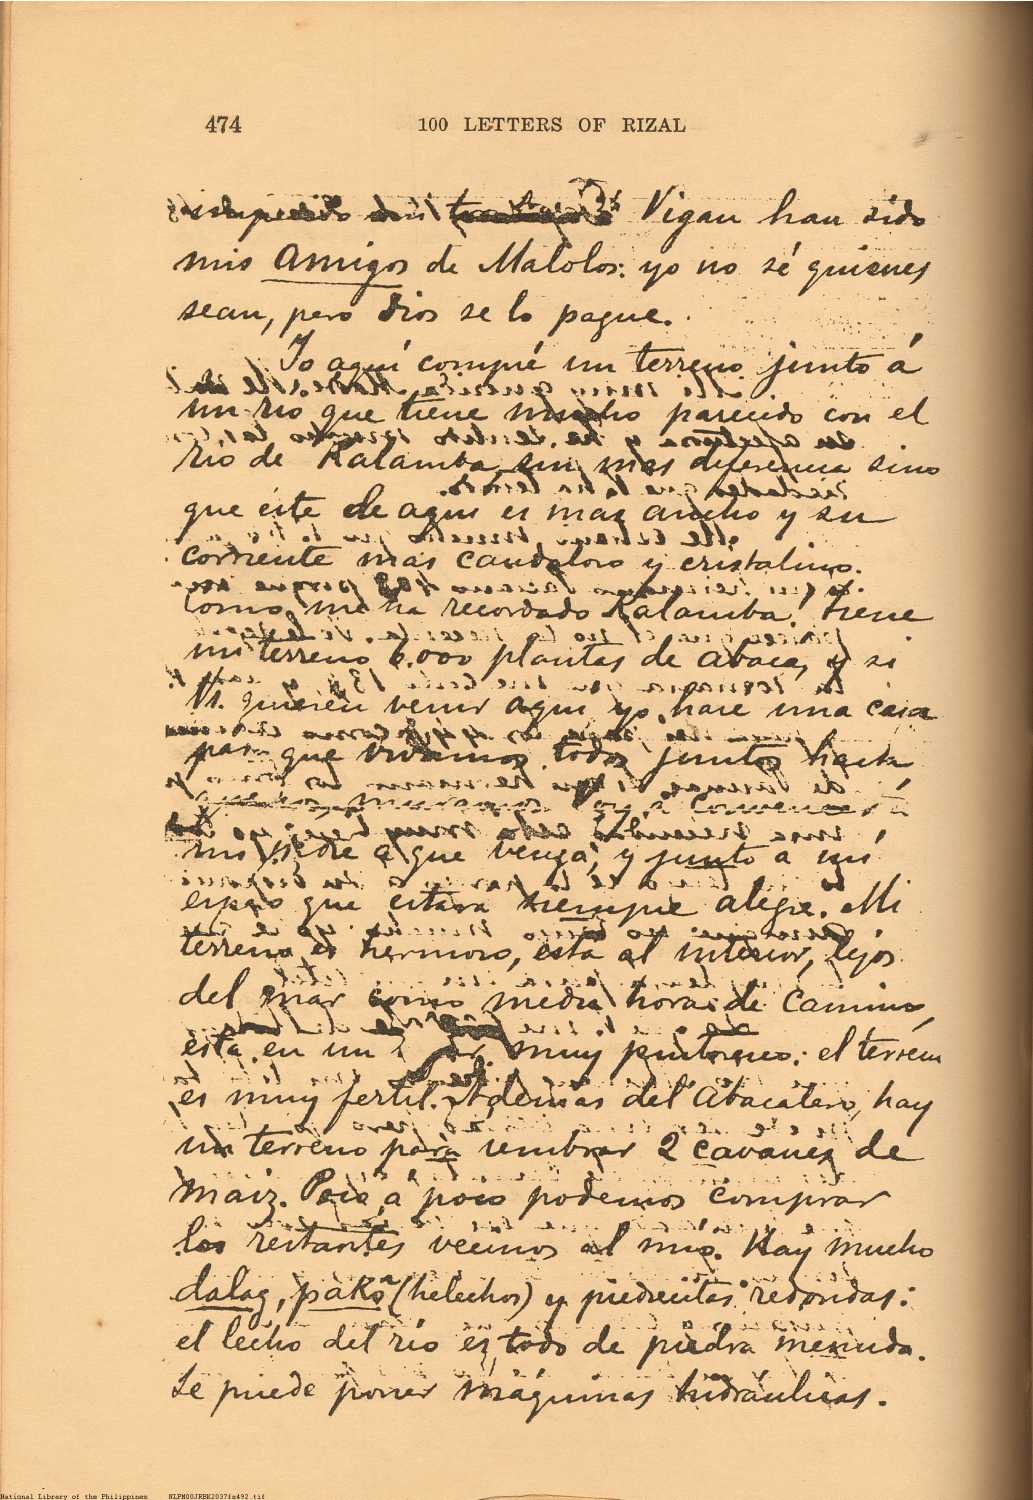 474 100 LETTERS OF RIZAL
Vigan han sido
mis amigos de Malolos: yo no sé quienes
sean, pero Dios se lo pague.
Yo aquí compré un terreno junto á
un rio que tiene mucho parecido con el
rio de Kalamba, sin mas diferencia sino
que éste de aqui es mas ancho y su
corriente mas caudaloso y cristalino.
Como me ha recordado Kalamba! Tiene
mi terreno 6.000 plantas de abacá, y si
Vs. quieren venir aqui yo hare una casa
para que vivamos todos juntos hasta
que muramos. Voy a convencer á
mi padre a que venga, y junto a mí
espero que estara siempre alegre. Mi
terreno es hermoso, esta al interior, lejos
del mar como media hora de camino,
está en un muy pintoresco: el terreno
es muy fertil. Además del Abacatero, hay
un terreno para sembrar 2 cavanes de
maiz. Poco á poco podemos comprar
los restantes vecinos al mio. Hay mucho
dalag, pakô (helechos) y piedrecitas redondas:
el lecho del rio es todo de piedra menuda.
Se puede poner máquinas hidráulicas.
National Library of the Philippines NLPM00JRBK2037fa492.tif